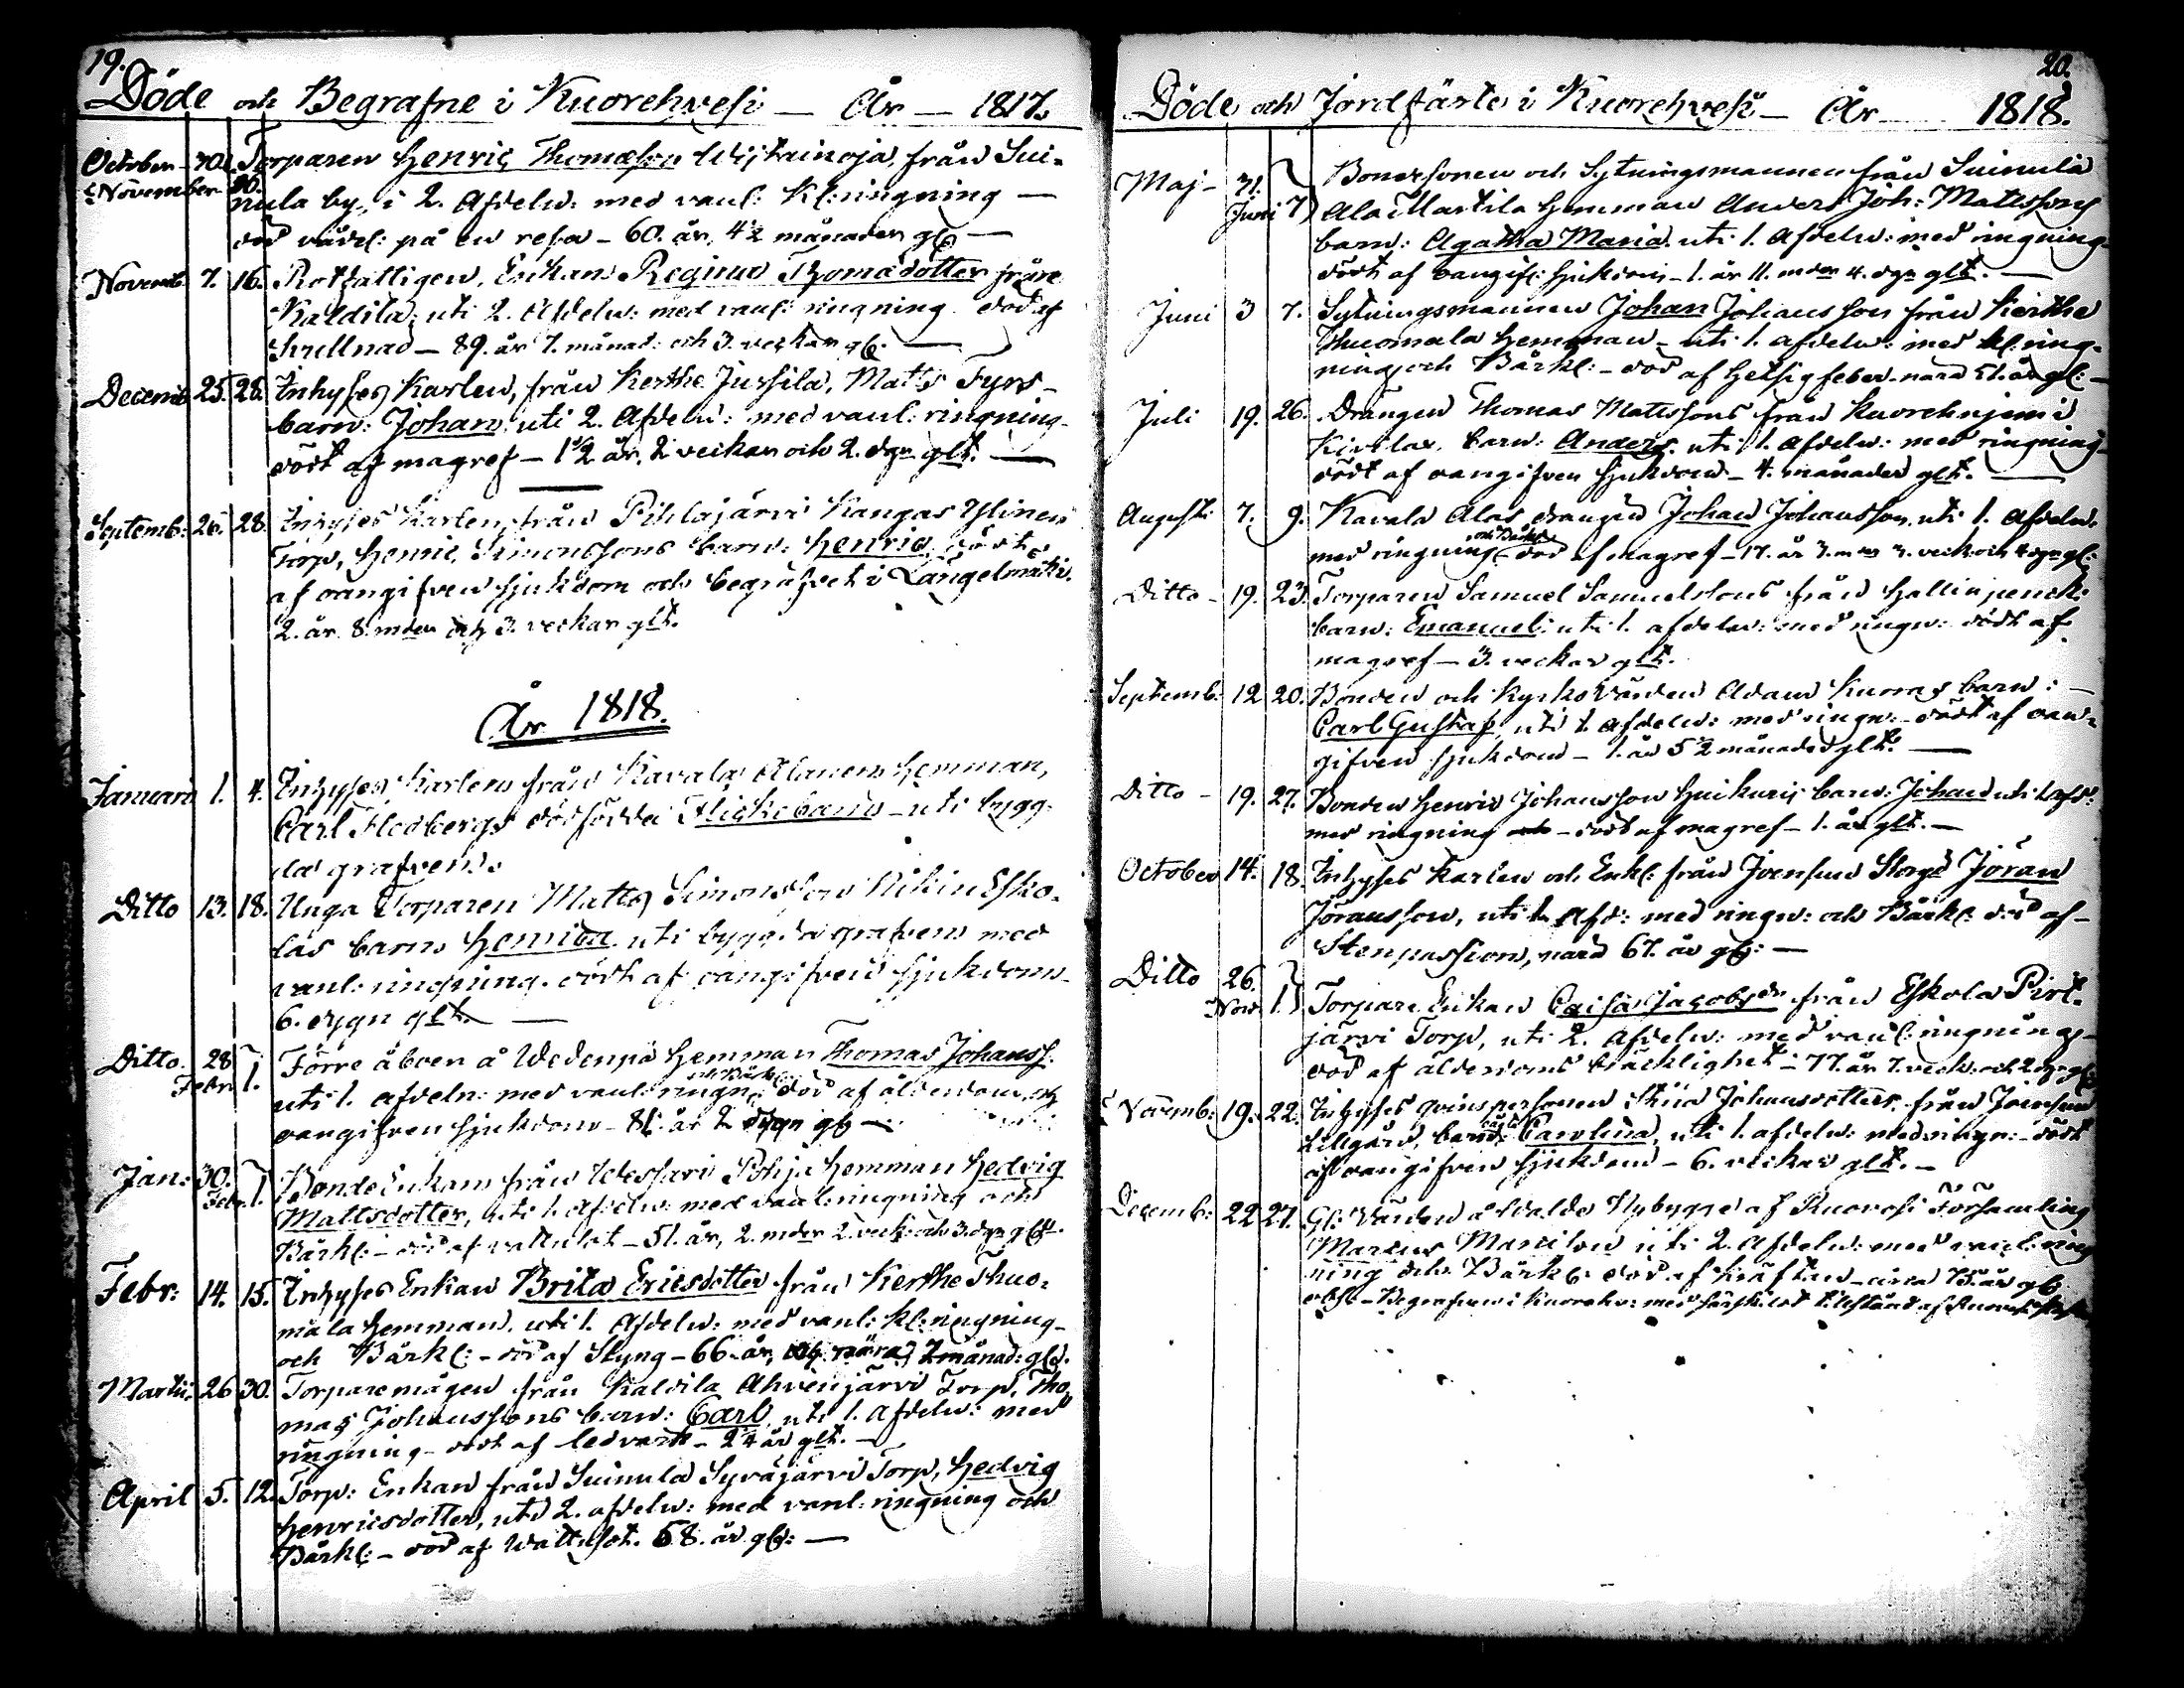 19.
Döde och Begrafne i Kuorehvesi — År — 1817.
October 30. Torparen Henric Thomæson Wijtainoja, från Sui-
Novemb 7. 16. Rotfattigen, Enkan Regina Thomædotter från
Kaldila, uti 2. Afdeln: med vanl: ringning död af
— 89. år 7. månad: och 3. veckor gl:
Decemb 25. 28. Inhyses Karlen, från Kerthe Jussila, Matts Fyrs
barn: Johan uti 2. Afdeln: med vanl: ringning
dödt af magref — 1 1/2 år, 2 veckor och 2. dgn glt.
Septemb: 26. 28. Inhyses Karlen, från Pihlajärvi Kangas Ylinen
Torp, Henric Simonssons barn: Henric dödt
af oangifven sjukdom och begrafvet i Längelmäki.
2. år 8. mder och 3. veckor glt.
År 1818.
Januarii 1. 4. Inhyses Karlens från Kavala Alanens Hemman,
Carl Hedbergs dödfödda Flickebarn — uti bygg-
da grafven.
Ditto 13. 18. Unga Torparen Matts Simonsson Esko-
las barn uti byggda grafven med
vanl: ringning. dödt af oangifven sjukdom
6. dygn glt.
Ditto 28 Febr. 1. Förre åboen å Wedenpä Hemman Thomas Johanss.
uti 1. afdeln: med vanl: ringn: och Bårkl: död af ålderdom och
oangifven sjukdom — 81. år 2 dygn gl:
Jan: 30. Febr. 1. Bonde Enkan från Pohja Hemman Hedvig
Mattsdotter, uti 1. Afdeln: med vanl: ringning och
Bårkl: — död af vattusot — 51. år, 2. mder 2. veck: och 3. dgn gl:
Febr: 14. 15. Inhyses Enkan Brita Ericsdotter från Kerthe Thuo-
mala Hemman, uti 1. Afdeln: med vanl: kl:ringning
och Bårkl: — död af Styng — 66 år, och nära 7 månad: gl:
Martii 26 30. Torparemågen från Kaldila Ahvenjärvi Torp, Tho-
mas Johanssons barn: Carl, uti 1. Afdeln: med
ringning — dödt af ledvärk — 2 1/4 år glt.
April 5. 12. Torp: Enkan från Suinula Syväjärvi Torp, Hedvig
Henricsdotter, uti 2. afdeln: med vanl: ringning och
Bårkl: — död af Wattusot. 58. år gl:
20.
Döde och Jordfäste i Kuorehvesi — År 1818.
Maj 31. Juni 7 Bonesonen och Sytningsmannen från Suinula
Ala Martila Hemman Anders Joh: Mattssons
barn: Agatha Maria uti 1. Afdeln: med ringning
dödt af oangifv: sjukdom — 1. år 11. mder 4. dgn glt.
Juni 3 7. Sytningsmannen Johan Johansson från Kerthe
Thuomala Hemman — uti 1. afdeln: med kl:ring-
ning och Bårkl: — död af Hetsig feber
Juli 19. 26. Drängen Thomas Mattssons från Kuorehnjemi
barn: Anders uti 1. Afdeln: med ringning
dödt af oangifven sjukdom — 4. månader glt.
Augusti 7. 9. Kavala Alas drängen Johan Johansson, uti 1. afdeln.
med ringning och Bårkl: död af magref — 17. år 3. mder 3. veck: och 4 dgn gl:
Ditto — 19. 23. Torparen Samuel Samuelssons från
barn: Emanuel: uti 1. afdeln: med ringn: dödt af
magref — 3. veckor glt.
Septemb: 12 20. Bonden och Kyrko Värden Adam Kuoras barn:
Carl Gustaf, uti 1. Afdeln: med ringn: — dödt af oan-
gifven sjukdom — 1. år 5 1/2 månader glt.
Ditto — 19. 27. Bonden Henric Johansson Huikuris barn: Johan uti 1. afd:
med ringning — dödt af magref — 1. år glt.
October 14. 18. Inhyses Karlen och Enkl: från Joensuu Jöran
Jöransson, uti 1. Afd: med ringn: och Bårkl: död af
Stenpassion, 67. år gl:
Ditto 26. Nov. 1. Torpare Enkan Caisa Jacobsdr från Eskola Pirt-
järvi Torp, uti 2. Afdeln: med vanl: ringning
död af ålderdoms bräcklighet — 77. år 7. veck: och 2 dgn gl:
Novemb: 19. 22. Inhyses qvinspersonen Stina Johansdotters från Joensuu
Lillgård, barn: Carolina, uti 1. afdeln: med ringn: — dödt
af oangifven sjukdom — 6. veckor glt.
Decemb: 22 27. Nybygge af Ruovesi Församling
uti 2. Afdeln: med vanl: ring-
ning och Bårkl: död af Kräftan — circa 75. år gl:
— Begrafven i Kuorehv: med